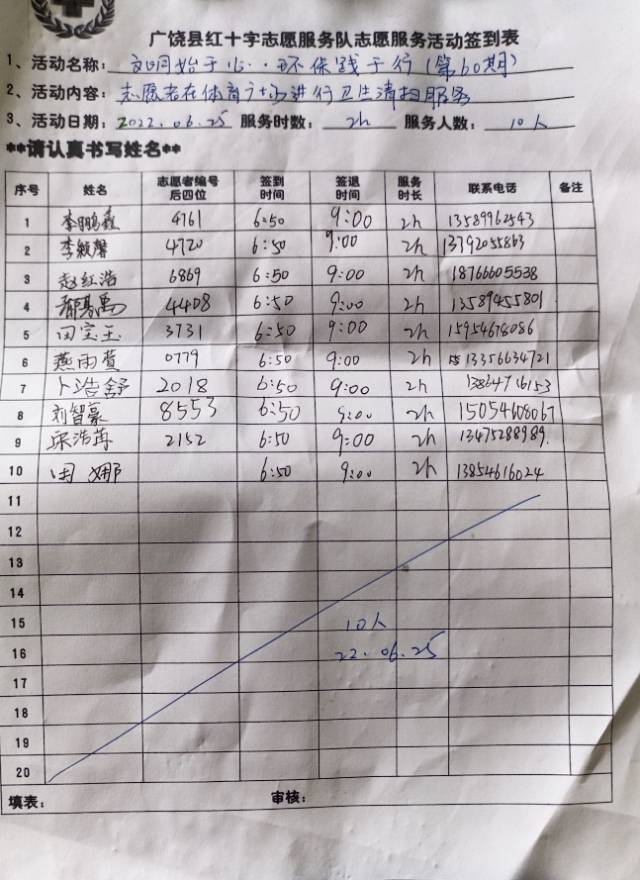 广饶县红十字志愿服务队志愿服务活动签到表
1、活动名称: 文明始于心··环保践于行(第60期)
2、活动内容: 志愿者在体育广场进行卫生清扫服务
3、活动日期: 2022.06.25 服务时数: 2h 服务人数: 10人
**请认真书写姓名**
序号 姓名 志愿者编号后四位 签到时间 签退时间 服务时长 联系电话 备注
1 李鹏森 4761 6:50 9:00 2h 13589962543
2 李颖馨 4720 6:50 9:00 2h 13792055863
3 赵红浩 6869 6:50 9:00 2h 18766605538
4 4408 6:50 9:00 2h 13589455801
5 田宝玉 3731 6:50 9:00 2h 15954678086
6 燕雨萱 0779 6:50 9:00 2h 13356634721
7 卜浩舒 2018 6:50 9:00 2h 13864716153
8 刘智豪 8553 6:50 9:00 2h 15054608067
9 宋浩苒 2152 6:50 9:00 2h 13475288989.
10 田娜 6:50 9:00 2h 13854616024
11
12
13
14
15 10人
16 22.06.25
17
18
19
20
填表: 审核: